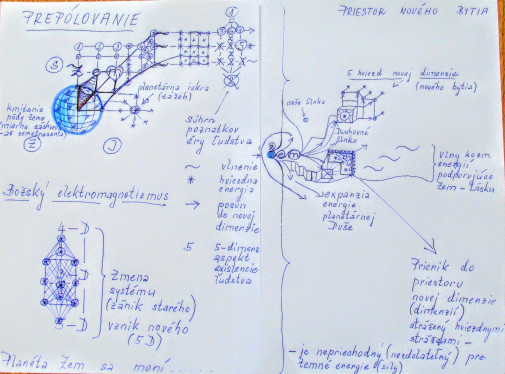 PREPÓLOVANIE
S
Ž
planetárna iskra
(zážeh)
kmitanie
pódy Zeme
mierne záchvevy
-ae zemetrasenia
Z
J
súhrn
poznatkov
éry ľudstva
~ vlnenie
* hviezdna
energia
→ posun
do novej
dimenzie
5 5-dimenz.
aspekt
existencie
ľudstva
Božský elektromagnetizmus
4-D
5-D
Zmena
systému
(zánik starého)
vznik nového
(5D)
Planéta Zem sa mení.....
PRIESTOR NOVÉHO BYTIA
5 hviezd novej dimenzie
(nového bytia)
naše Slnko
Duchovné
Slnko
vlny kozm.
energií
podporujúce
Zem - Lásku
expanzia
energie
planetárnej
Duše
Prienik do
priestoru
novej dimenzie
(dimenzií)
strážený hviezdnymi
strážcami -
- je nepriechodný (nezdolateľný) pre
temné energie (sily)